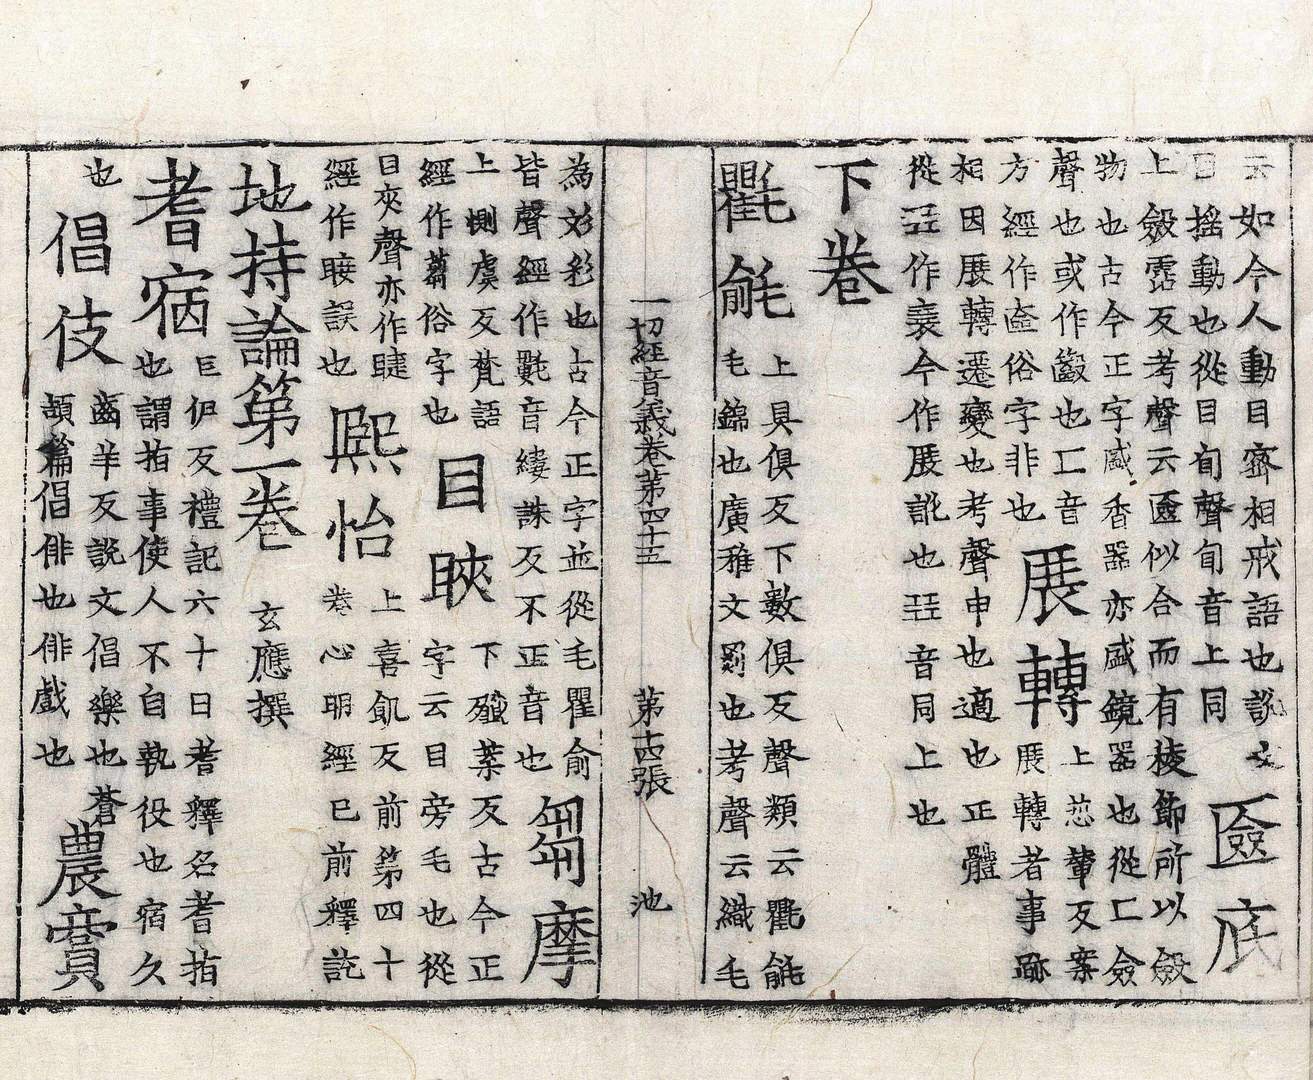 云如今人動目密相戒語也說文
目搖動也從目旬聲旬音上同
匳底
上斂霑反考聲云匳似合而有棱飾所以斂
物也古今正字盛香器亦盛鏡器也從匚僉
聲也或作籢也匚音
方經作奩俗字非也
展轉
上悲輦反案
展轉者事跡
相因展轉遷變也考聲申也適也正體
從㠭作襄今作展訛也㠭音同上也
下卷
氍毹
上具俱反下數俱反聲類云氍毹
毛錦也廣雅文罽也考聲云織毛
一切經音義卷第四十五
第十四張
池
為紛綵也古今正字並從毛瞿俞
皆聲經作㲣音縷誅反不正音也
芻摩
上惻虞反梵語
經作蒭俗字也
目䀹
下殲葉反古今正
字云目旁毛也從
目夾聲亦作睫
經作𥇒誤也
熙怡
上喜飢反前第四十
卷心明經已前釋訖
地持論第一卷
玄應撰
耆宿
巨伊反禮記六十曰耆釋名耆指
也謂指事使人不自執役也宿久
也
倡伎
齒羊反說文倡樂也蒼
頡篇倡俳也俳戲也
農賓